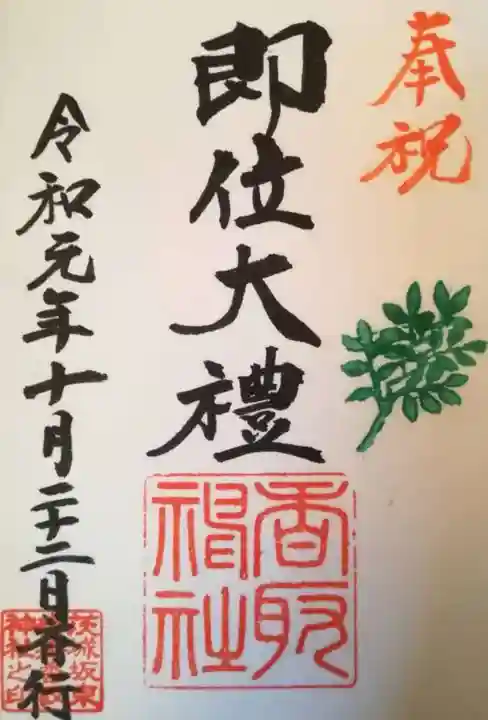 奉祝
即位大禮
香取神社
令和元年十月二十二日斉行